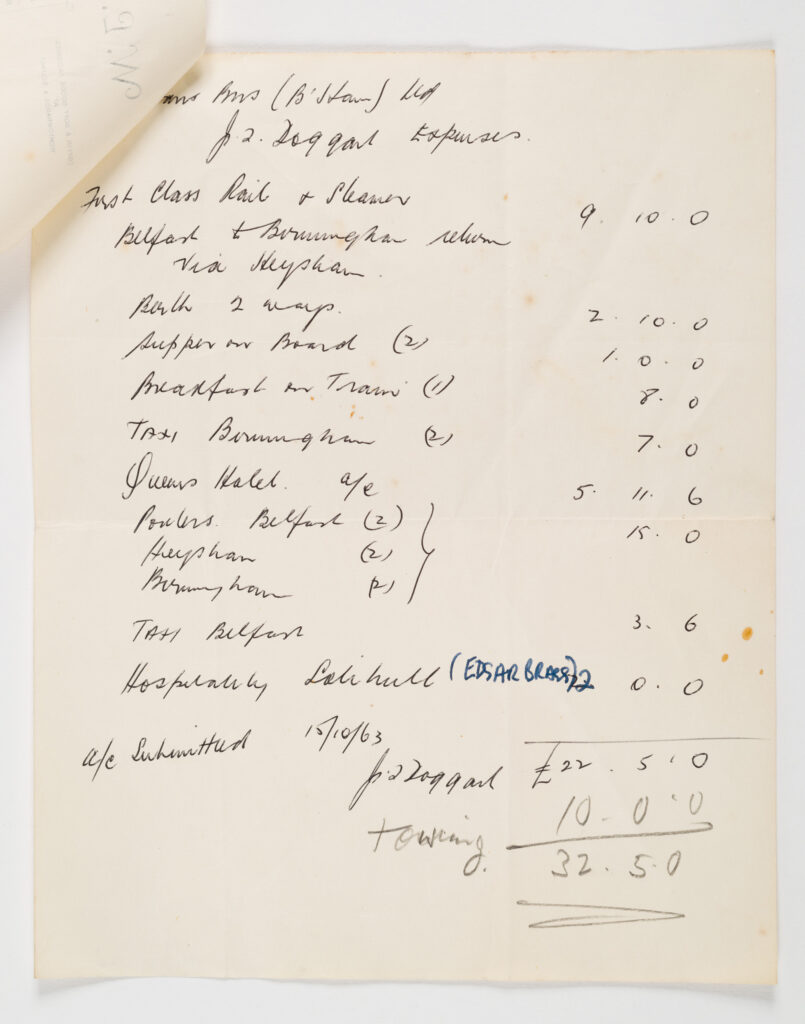 Bros (B'Ham) Ltd
Jas. Doggart Expenses.
First Class Rail & Steamer 9. 10. 0
Belfast to Birmingham return
via Heysham.
Berth 2 ways. 2. 10. 0
Supper on Board (2) 1. 0. 0
Breakfast on Train (1) 8. 0
Taxi Birmingham (2) 7. 0
Queens Hotel. a/c 5. 11. 6
Porters. Belfast (2) 15. 0
Heysham (2)
Birmingham (2)
Taxi Belfast 3. 6
Hospitality Solihull (EDGAR BRAGG) 2 0. 0
a/c Submitted 15/10/63
Doggart £22. 5. 0
10. 0. 0
+ owing.
32. 5. 0